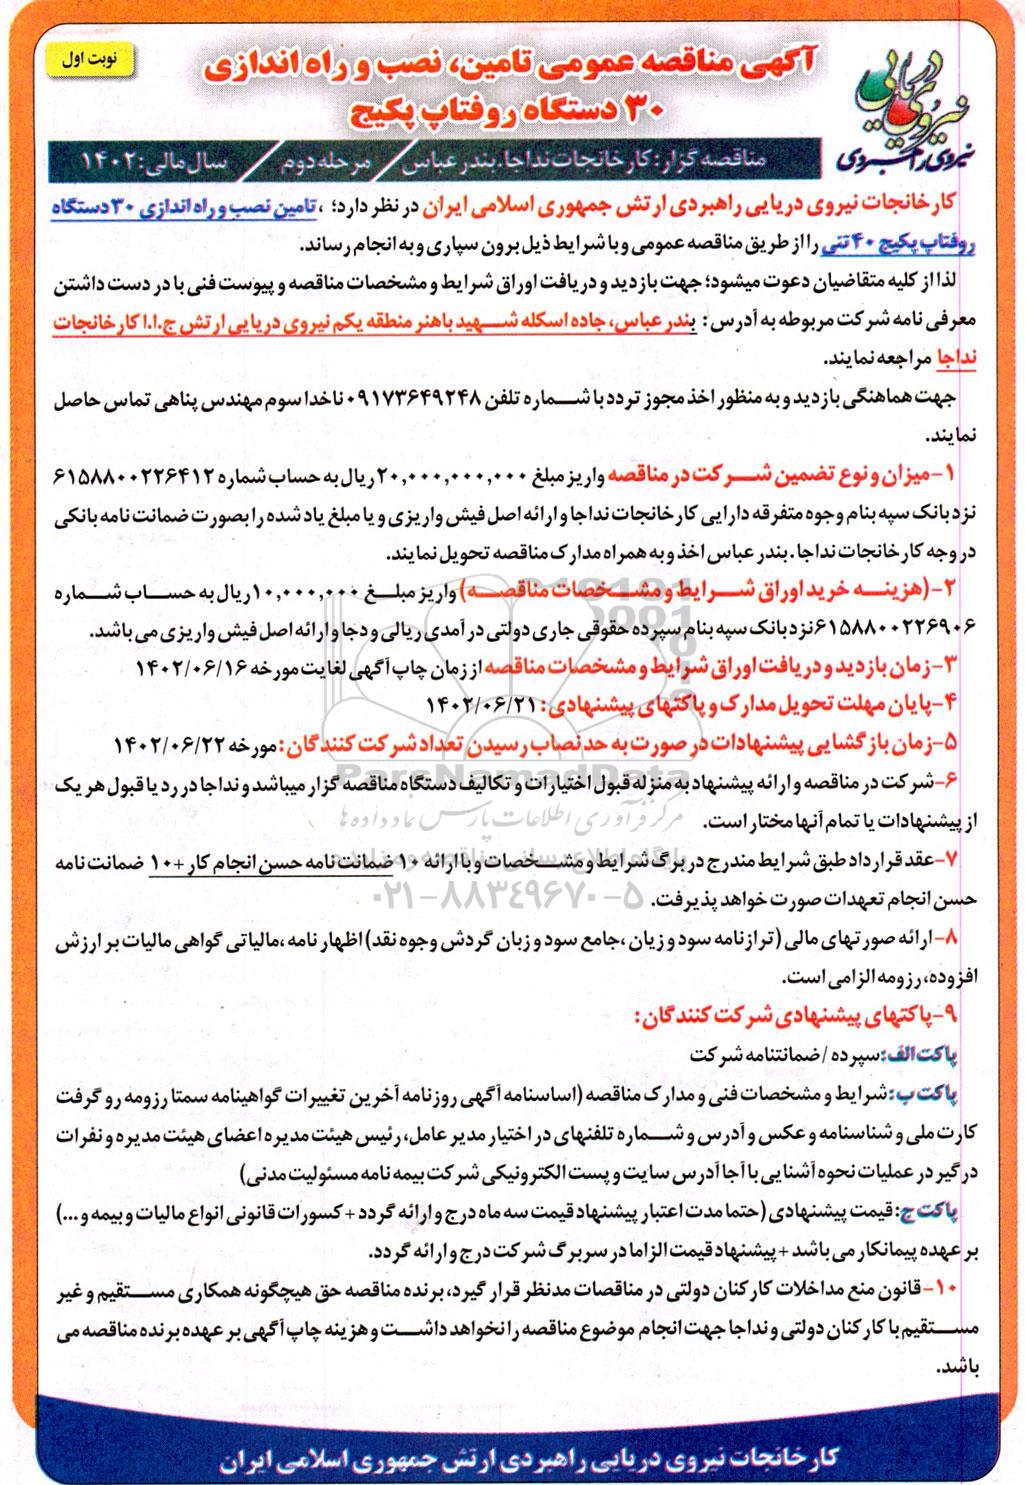 نوبت اول
آگهی مناقصه عمومی تامین، نصب و راه اندازی
۳۰ دستگاه روفتاپ پکیج
نیروی دریایی
نیروی راهبردی
مناقصه گزار: کارخانجات نداجا.بندرعباس / مرحله دوم / سال مالی: ۱۴۰۲
کارخانجات نیروی دریایی راهبردی ارتش جمهوری اسلامی ایران در نظر دارد؛ ، تامین نصب و راه اندازی ۳۰ دستگاه
روفتاپ پکیج ۴۰ تنی را از طریق مناقصه عمومی و با شرایط ذیل برون سپاری و به انجام رساند.
لذا از کلیه متقاضیان دعوت میشود؛ جهت بازدید و دریافت اوراق شرایط و مشخصات مناقصه و پیوست فنی با در دست داشتن
معرفی نامه شرکت مربوطه به آدرس : بندر عباس، جاده اسکله شهید باهنر منطقه یکم نیروی دریایی ارتش ج.ا.ا کارخانجات
نداجا مراجعه نمایند.
جهت هماهنگی بازدید و به منظور اخذ مجوز تردد با شماره تلفن ۰۹۱۷۳۶۴۹۲۴۸ ناخدا سوم مهندس پناهی تماس حاصل
نمایند.
۱-میزان و نوع تضمین شرکت در مناقصه واریز مبلغ ۲۰,۰۰۰,۰۰۰,۰۰۰ ریال به حساب شماره ۶۱۵۸۸۰۰۲۲۶۴۱۲
نزد بانک سپه بنام وجوه متفرقه دارایی کارخانجات نداجا و ارائه اصل فیش واریزی و یا مبلغ یاد شده را بصورت ضمانت نامه بانکی
در وجه کارخانجات نداجا.بندر عباس اخذ و به همراه مدارک مناقصه تحویل نمایند.
۲-(هزینه خرید اوراق شرایط و مشخصات مناقصه) واریز مبلغ ۱۰,۰۰۰,۰۰۰ ریال به حساب شماره
۶۱۵۸۸۰۰۲۲۶۹۰۶ نزد بانک سپه بنام سپرده حقوقی جاری دولتی درآمدی ریالی ودجا و ارائه اصل فیش واریزی می باشد.
۳-زمان بازدید و دریافت اوراق شرایط و مشخصات مناقصه از زمان چاپ آگهی لغایت مورخه ۱۴۰۲/۰۶/۱۶
۴-پایان مهلت تحویل مدارک و پاکتهای پیشنهادی: ۱۴۰۲/۰۶/۲۱
۵-زمان بازگشایی پیشنهادات در صورت به حد نصاب رسیدن تعداد شرکت کنندگان: مورخه ۱۴۰۲/۰۶/۲۲
ParsNamadData
۶-شرکت در مناقصه و ارائه پیشنهاد به منزله قبول اختیارات و تکالیف دستگاه مناقصه گزار میباشد و نداجا در رد یا قبول هر یک
از پیشنهادات یا تمام آنها مختار است.
مرکز فرآوری اطلاعات پارس نماد داده ها
۷-عقد قرارداد طبق شرایط مندرج در برگ شرایط و مشخصات و با ارائه ۱۰ ضمانت نامه حسن انجام کار +۱۰ ضمانت نامه
حسن انجام تعهدات صورت خواهد پذیرفت.
۰۲۱-۸۸۳۴۹۶۷۰-۵
۸-ارائه صورتهای مالی (ترازنامه سود و زیان ،جامع سود و زبان گردش وجوه نقد) اظهار نامه ،مالیاتی گواهی مالیات بر ارزش
افزوده، رزومه الزامی است.
۹-پاکتهای پیشنهادی شرکت کنندگان:
پاکت الف: سپرده /ضمانتنامه شرکت
پاکت ب: شرایط و مشخصات فنی و مدارک مناقصه (اساسنامه آگهی روزنامه آخرین تغییرات گواهینامه سمتا رزومه رو گرفت
کارت ملی و شناسنامه و عکس و آدرس و شماره تلفنهای در اختیار مدیر عامل، رئیس هیئت مدیره اعضای هیئت مدیره و نفرات
درگیر در عملیات نحوه آشنایی با آجا آدرس سایت و پست الکترونیکی شرکت بیمه نامه مسئولیت مدنی)
پاکت ج: قیمت پیشنهادی (حتما مدت اعتبار پیشنهاد قیمت سه ماه درج و ارائه گردد + کسورات قانونی انواع مالیات و بیمه و ...)
بر عهده پیمانکار می باشد + پیشنهاد قیمت الزاما در سربرگ شرکت درج و ارائه گردد.
۱۰- قانون منع مداخلات کارکنان دولتی در مناقصات مدنظر قرار گیرد، برنده مناقصه حق هیچگونه همکاری مستقیم و غیر
مستقیم با کارکنان دولتی و نداجا جهت انجام موضوع مناقصه را نخواهد داشت و هزینه چاپ آگهی بر عهده برنده مناقصه می
باشد.
کارخانجات نیروی دریایی راهبردی ارتش جمهوری اسلامی ایران